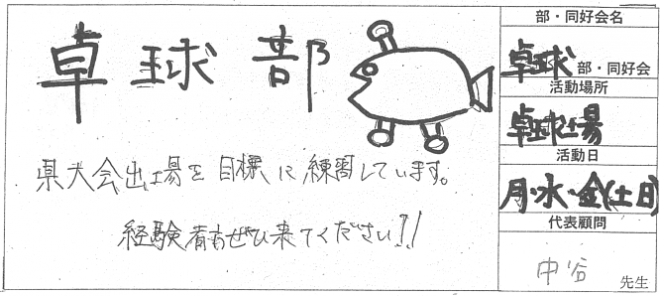 卓球部
県大会出場を目標に練習しています。
経験者もぜひ来てください!!
部・同好会名
卓球 部・同好会
活動場所
卓球場
活動日
月・水・金(土日)
代表顧問
中谷 先生